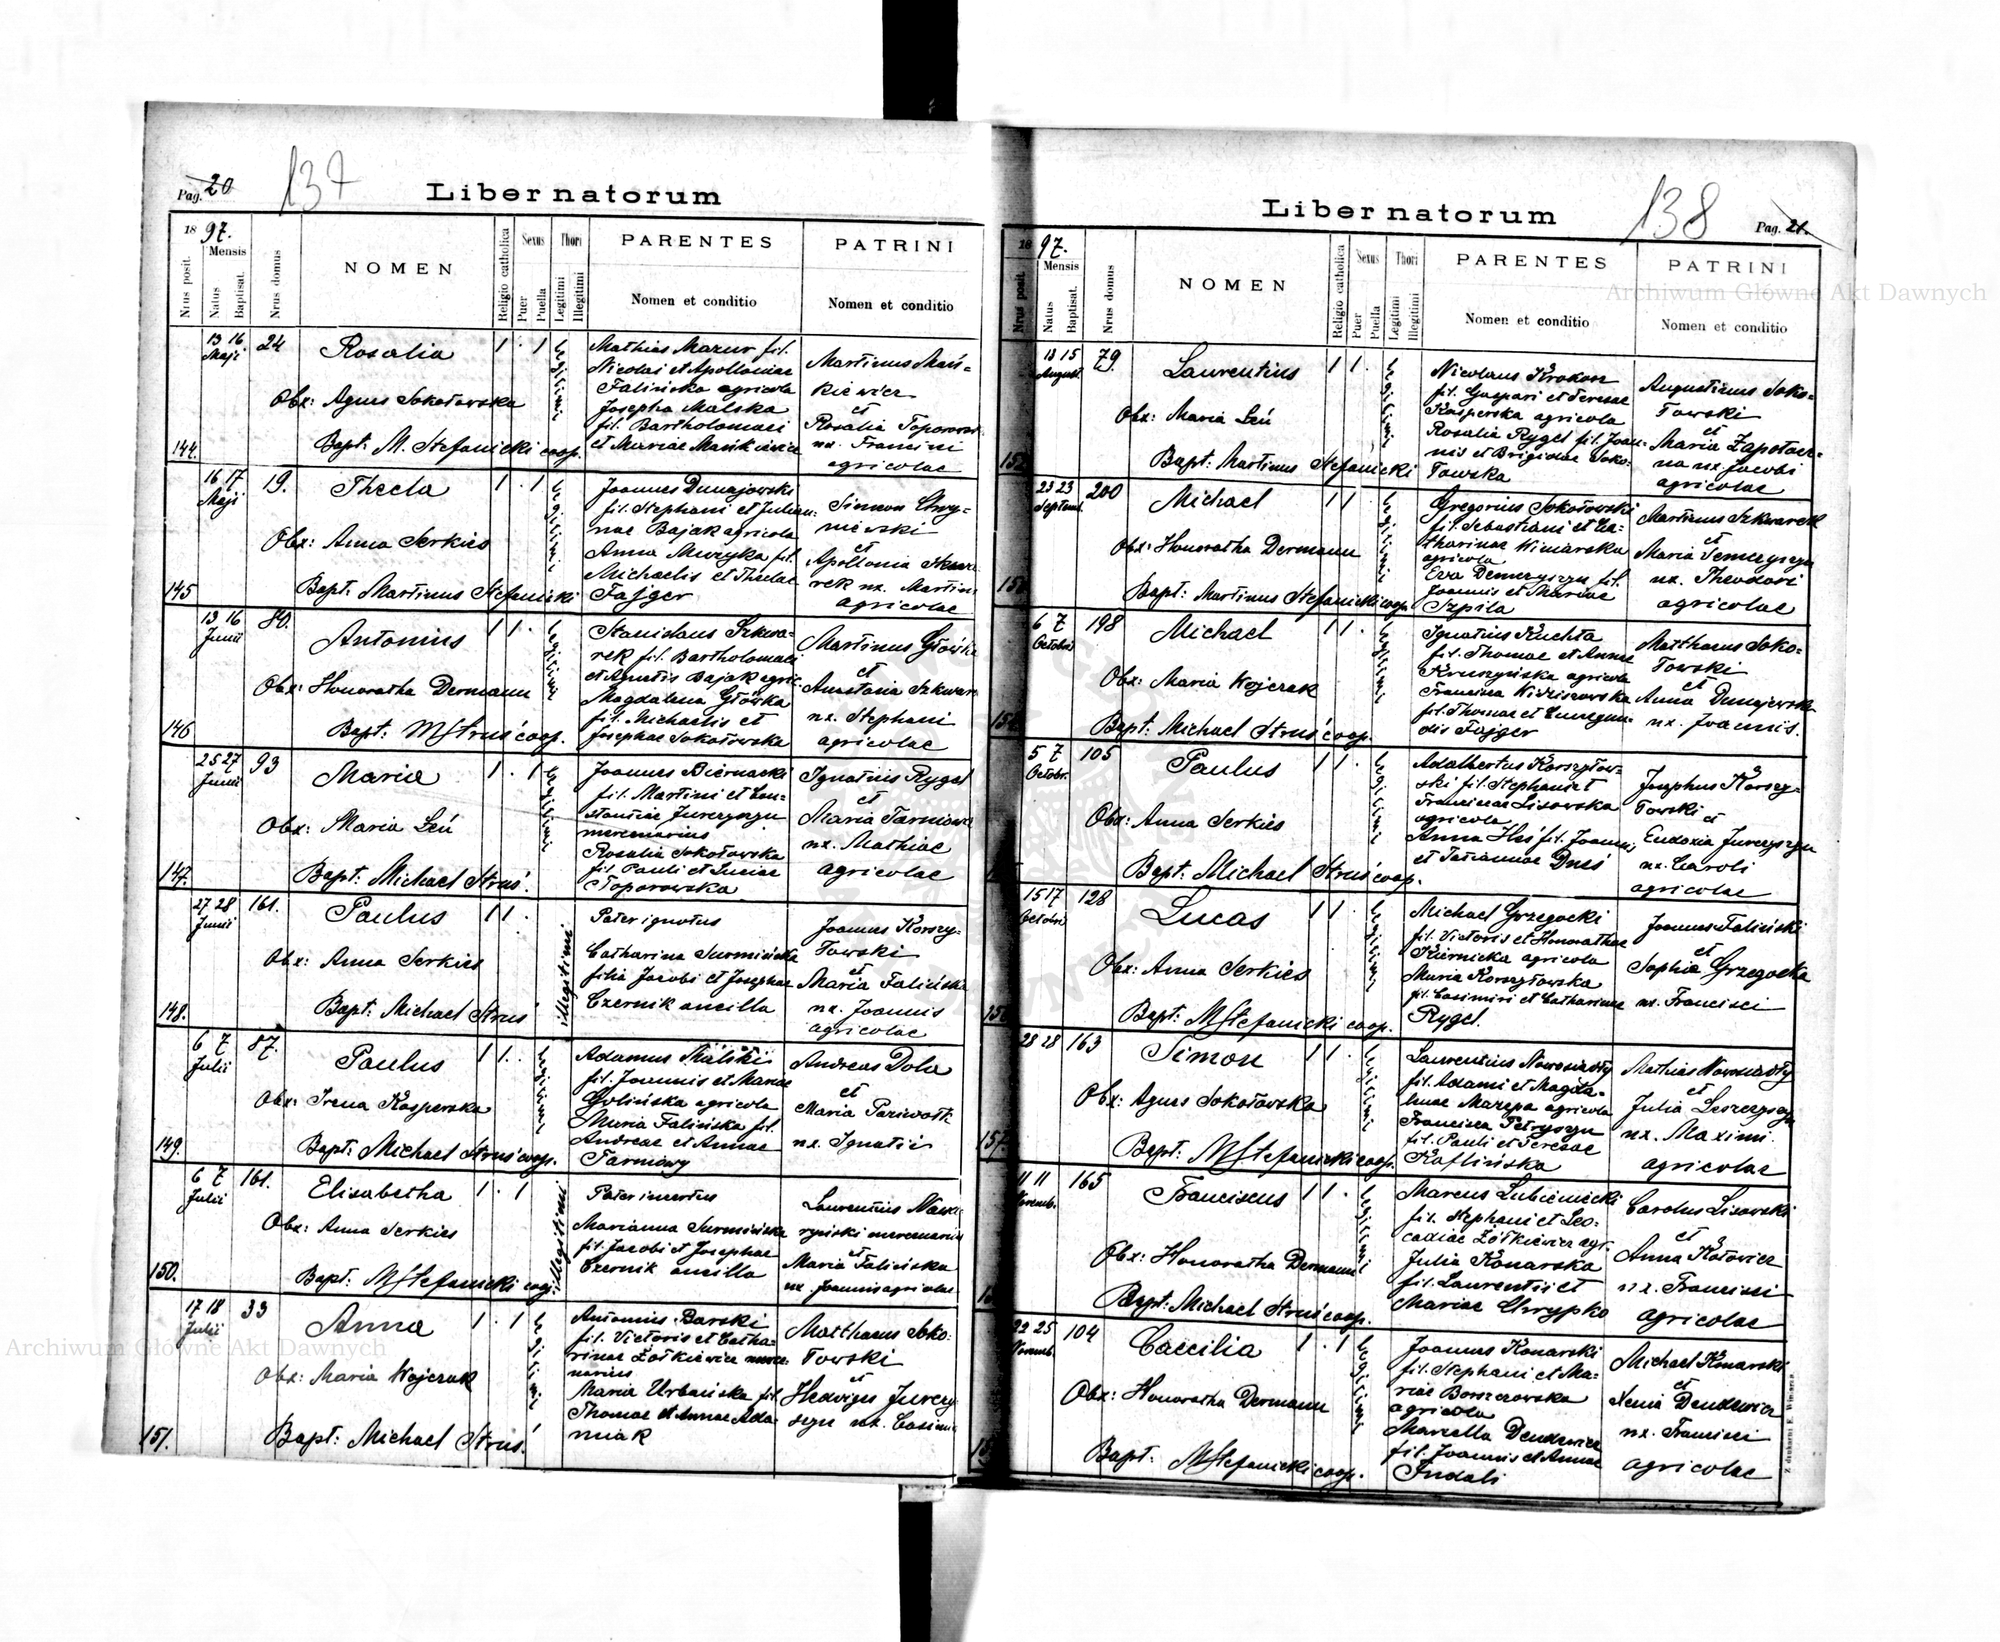 Pag. 20
137
Liber natorum
18 97.
Nrus posit.
Mensis
Natus
Baptisat.
Nrus domus
NOMEN
Religio catholica
Sexus
Puer
Puella
Thori
Legitimi
Illegitimi
PARENTES
Nomen et conditio
PATRINI
Nomen et conditio
144.
13 16
Maji
24
Rosalia
Obx: Agnes Sokołowska
Bapt: M. Stefanicki coop.
1 . 1
legitimi
Mathias Mazur fil.
Nicolai et Apolloniae
Falińska agricola
Josepha Malska
fil. Bartholomaei
et Mariae Mańkiewicz
Martinus Mań-
kiewicz
et
Rosalia Toporows
ux. Francisci
agricolae
145
16 17
Maji
19.
Thecla
Obx: Anna Serkies
Bapt: Martinus Stefanicki
1 . 1
legitimi
Joannes Dunajowski
fil. Stephani et Julian-
nae Bajak agricola
Anna Muzyka fil.
Michaelis et Theclae
Fajger
Simeon Chry-
niewski
et
Apollonia Szkwa
rek ux. Martini
agricolae
146
13 16
Junii
80.
Antonius
Obx: Honoratha Dermann
Bapt: MStruś coop.
1 1 .
legitimi
Stanislaus Szkwa-
rek fil. Bartholomaei
et Agnetis Bajak agric
Magdalena Główka
fil. Michaelis et
Josephae Sokołowska
Martinus Główka
et
Anastasia Szkwar
ux. Stephani
agricolae
147.
25 27
Junii
93
Maria
Obx: Maria Leń
Bapt: Michael Struś.
1 . 1
legitimi
Joannes Biernacki
fil. Martini et Con-
stantiae Jurczyszyn
mercenarius
Rosalia Sokołowska
fil. Pauli et Luciae
Toporowska
Ignatius Rygel
et
Maria Tarnowa
ux. Mathiae
agricolae
148.
27 28
Junii
161.
Paulus
Obx: Anna Serkies
Bapt: Michael Struś
1 1 .
illegitimi
Pater ignotus
Catharina Surmińska
filia Jacobi et Josephae
Czernik ancilla
Joannes Korszy-
łowski
et
Maria Falińska
ux. Joannis
agricolae
149.
6 7
Julii
87.
Paulus
Obx: Irena Kasperska
Bapt: Michael Struś coop.
1 1 .
legitimi
Adamus Malski
fil. Joannis et Mariae
Golińska agricola
Maria Falińska fil.
Andreae et Annae
Tarnowy
Andreas Dola
et
Maria
ux. Ignatii
150.
6 7
Julii
161.
Elisabetha
Obx: Anna Serkies
Bapt: MStefanicki coop.
1 . 1
illegitimi
Pater incertus
Marianna Surmińska
fil. Jacobi et Josephae
Czernik ancilla
Laurentius Naw
ryński mercenarius
et
Maria Falińska
ux. Joannis agricolae
151.
17 18
Julii
33
Anna
Obx: Maria Wojczak
Bapt: Michael Struś.
1 . 1
legitimi
Antonius Barski
fil. Victoris et Catha-
rinae Żółkiewicz merce-
narius
Maria Urbańska fil.
Thomae et Annae Ada
miak
Matthaeus Soko-
łowski
et
Hedvigis Jurczy
szyn ux. Casimiri
138
Pag. 21.
Liber natorum
18 97.
Nrus posit
Mensis
Natus
Baptisat.
Nrus domus
NOMEN
Religio catholica
Sexus
Puer
Puella
Thori
Legitimi
Illegitimi
PARENTES
Nomen et conditio
PATRINI
Nomen et conditio
152
13 15
August.
79.
Laurentius
Obx: Maria Leń
Bapt: Martinus Stefanicki
1 1 .
legitimi
Nicolaus Krokosz
fil. Gaspari et Teresae
Kasperska agricola
Rosalia Rygel fil. Joan-
nis et Brigidae Soko-
łowska
Augustinus Soko-
łowski
et
Maria Zapotocz-
na ux. Jacobi
agricolae
23 23
Septemb.
200
Michael
Obx: Honoratha Dermann
Bapt: Martinus Stefanicki coop.
1 1 .
legitimi
Gregorius Sokołowski
fil. Sebastiani et Ca-
tharinae Winiarska
agricola
Eva Demczyszyn fil.
Joannis et Mariae
Szpila
Martinus Szkwarek
et
Maria Demczyszyn
ux. Theodori
agricolae
6 7
Octobris
198
Michael
Obx: Maria Wojczak
Bapt: Michael Struś coop.
1 1 .
legitimi
Ignatius Kuchta
fil. Thomae et Annae
Kruszyńska agricola
Francisca Widziszowska
fil. Thomae et Cunegun-
dis Fajger
Matthaeus Soko-
łowski
et
Anna Dunajewsk
ux. Joannis.
5 7
Octobr.
105
Paulus
Obx: Anna Serkies
Bapt: Michael Struś coop.
1 1 .
legitimi
Adalbertus Korszyłow-
ski fil. Stephani et
Franciscae Lisowska
agricola
Anna Huś fil. Joannis
et Tatiannae Dneś
Josephus Korszy-
łowski et
Eudoxia Jurczyszyn
ux. Caroli
agricolae
15 17
Octobris
128
Lucas
Obx: Anna Serkies
Bapt: MStefanicki coop.
1 1 .
legitimi
Michael Grzegocki
fil. Victoris et Honorathae
Kiernicka agricola
Maria Korszyłowska
fil. Casimiri et Catharinae
Rygel.
Joannes Faliński
et
Sophia Grzegocka
ux. Francisci
157.
28 28
163
Simon
Obx: Agnes Sokołowska
Bapt: MStefanicki coop.
1 1 .
legitimi
Laurentius Nowosiadły
fil. Adami et Magda-
lenae Mazepa agricola
Francisca Petryszyn
fil. Pauli et Teresae
Kaflińska
Mathias Nowosiadły
et
Julia Leszczyszyn
ux. Maximi.
agricolae
11 11
Novemb.
165
Franciscus
Obx: Honoratha Dermann
Bapt: Michael Struś coop.
1 1 .
legitimi
Marcus Lubieniecki
fil. Stephani et Leo-
cadiae Żółkiewicz agr.
Julia Konarska
fil. Laurentii et
Mariae Chrypko
Carolus Lisowski
et
Anna Kotowicz
ux. Francisci
agricolae
22 25
Novemb.
104
Caecilia
Obx: Honoratha Dermann
Bapt: MStefanicki coop.
1 . 1
legitimi
Joannes Konarski
fil. Stephani et Ma-
riae Borszczowska
agricola
Marcella Dendewicz
fil. Joannis et Annae
Indali
Michael Konarski
et
Xenia Dendewicz
ux. Francisci
agricolae
Z drukarni E. Winiarza.
Archiwum Główne Akt Dawnych
Archiwum Główne Akt Dawnych